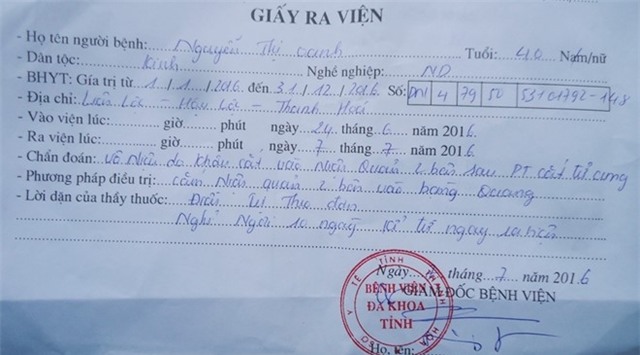 GIẤY RA VIỆN
- Họ tên người bệnh: Nguyễn Thị Oanh Tuổi: 40 Nam/nữ
- Dân tộc: Kinh Nghề nghiệp: ND
- BHYT: Gía trị từ 1/1/2016 đến 31/12/2016 Số: DN 4 79 50 53101792-148
- Địa chỉ: Liên Lộc - Hậu Lộc - Thanh Hoá
- Vào viện lúc: giờ phút ngày 24 tháng 6 năm 2016
- Ra viện lúc: giờ phút ngày 7 tháng 7 năm 2016.
- Chẩn đoán: vô Niệu do khâu cắt vào Niệu Quản 2 bên sau PT cắt tử cung
- Phương pháp điều trị: cắm Niệu quản 2 bên vào bàng Quang
- Lời dặn của thầy thuốc: Điều trị Theo đơn
Nghỉ Ngơi 10 ngày kể từ ngày ra viện
Ngày tháng 7 năm 2016
GIÁM ĐỐC BỆNH VIỆN
BỆNH VIỆN
ĐA KHOA
TỈNH
Họ, tên: